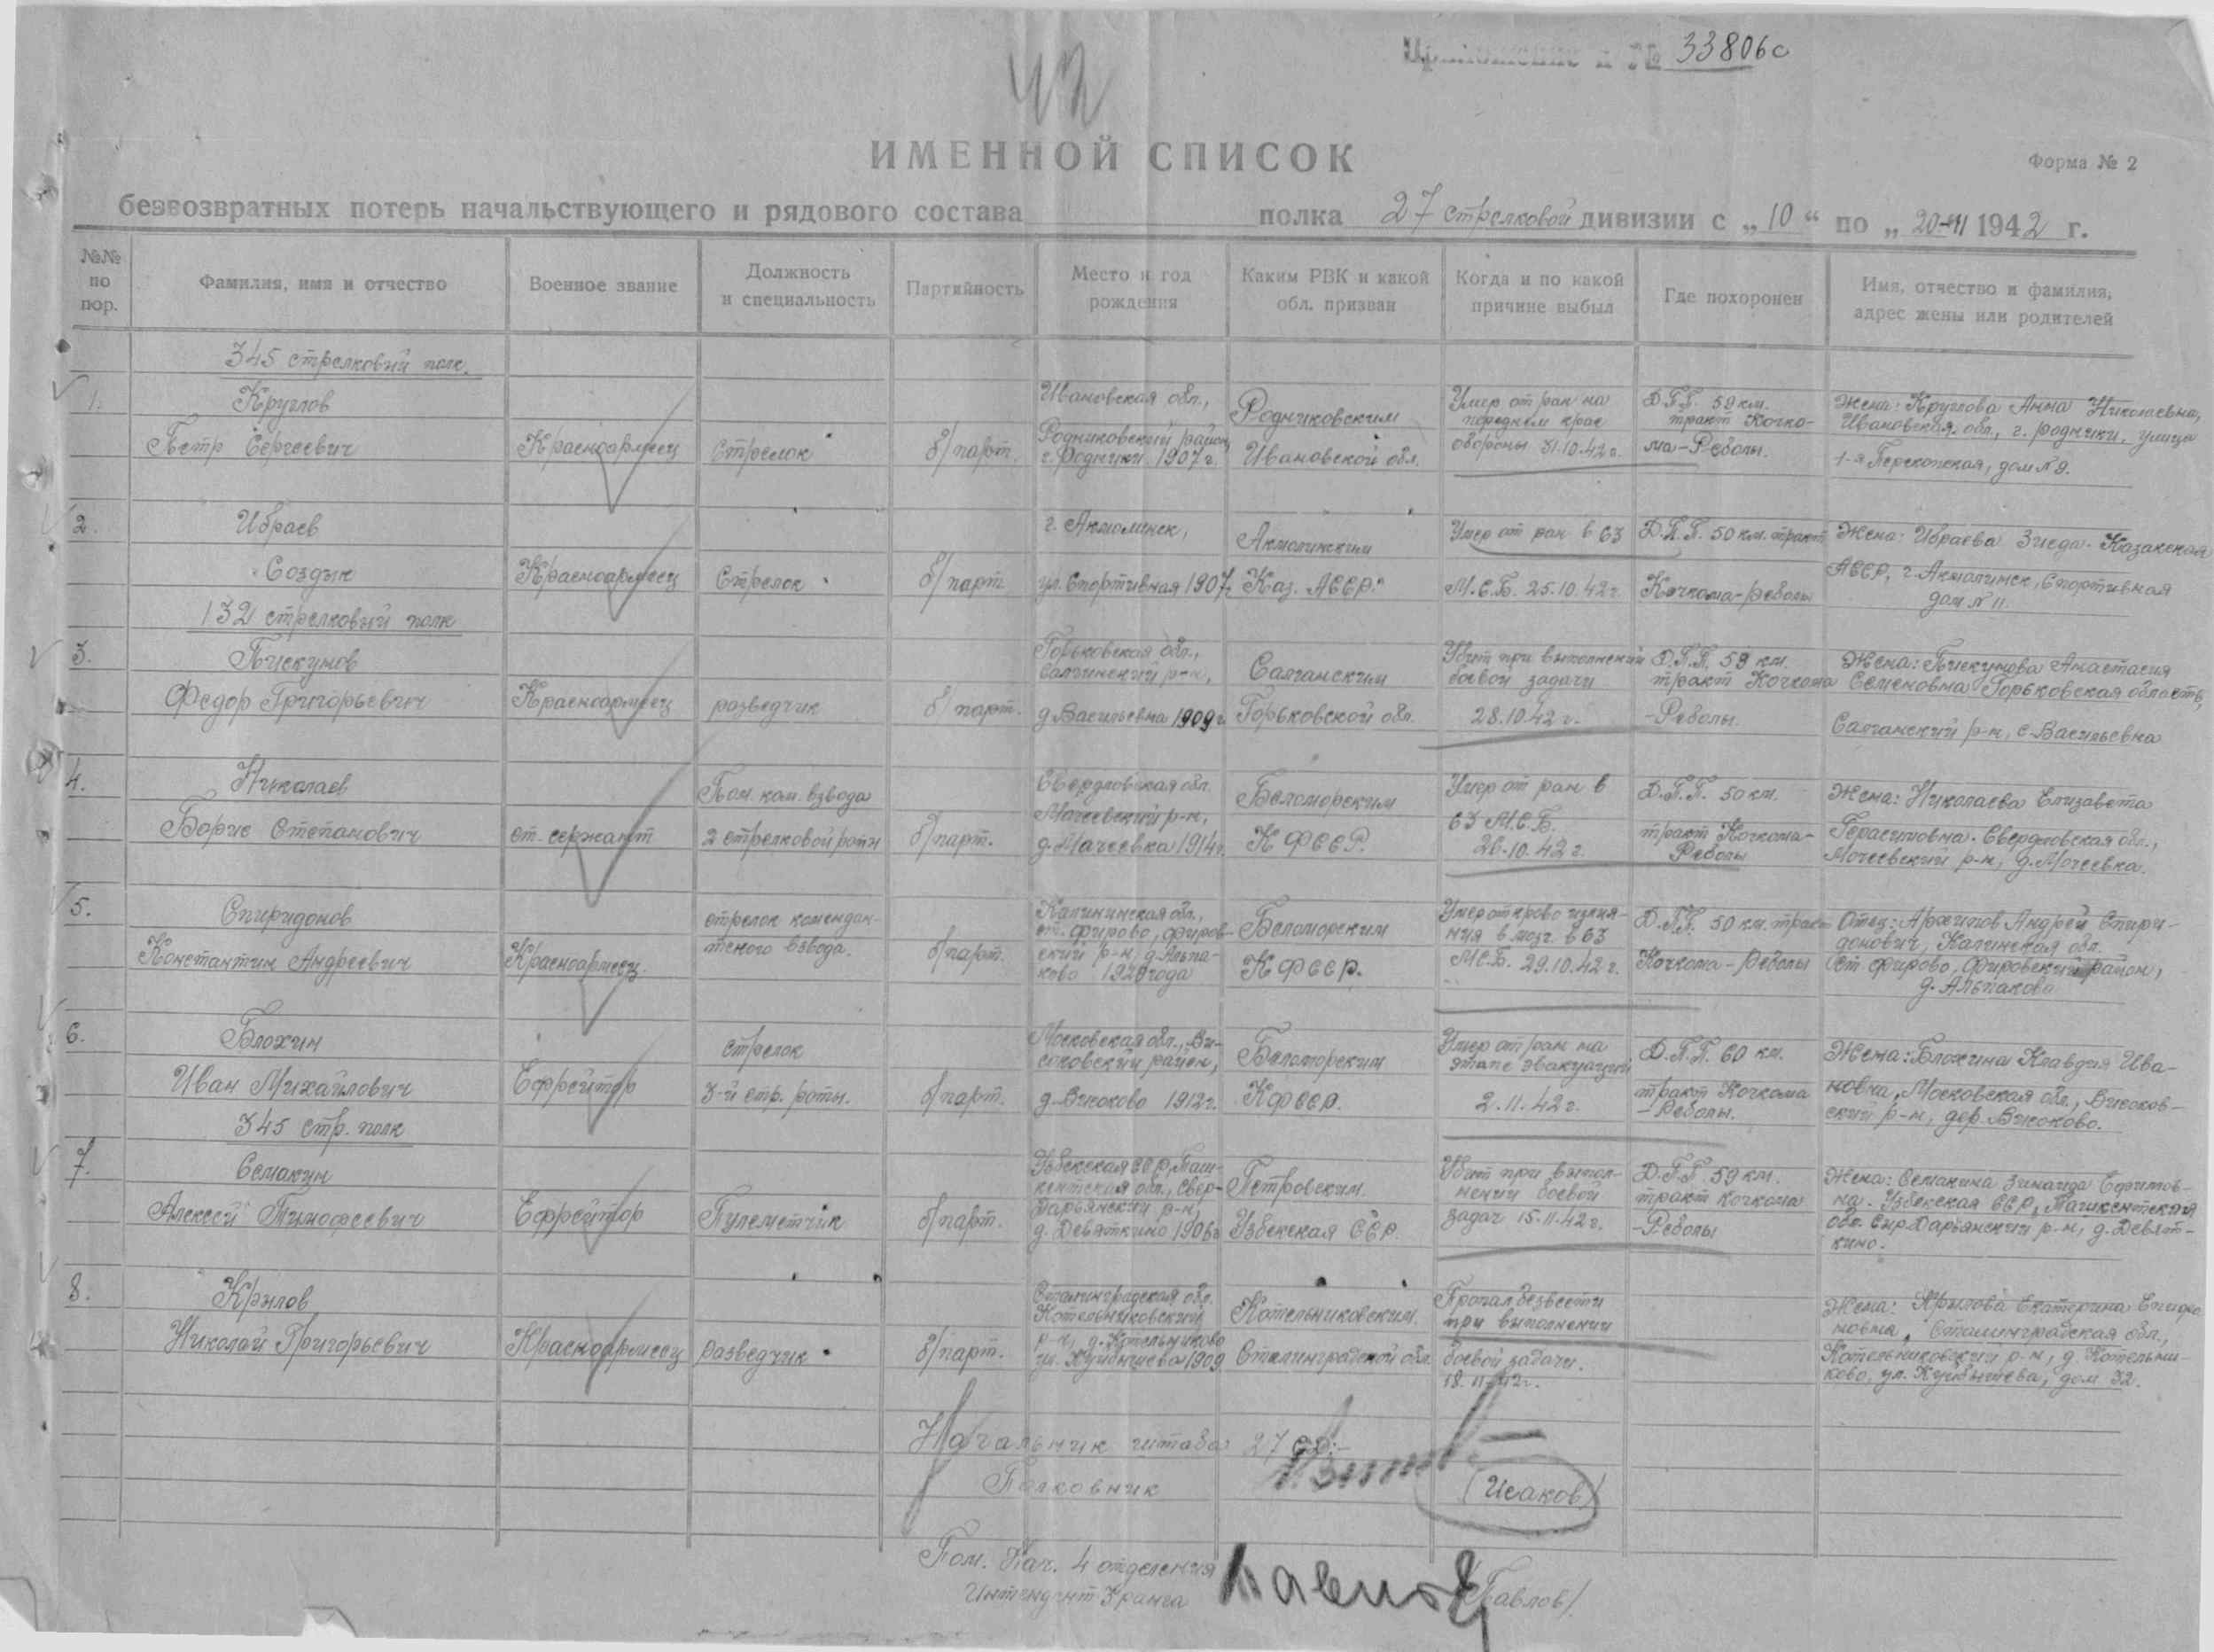 Приложение к № 33806с
42
ИМЕННОЙ СПИСОК
Форма № 2
безвозвратных потерь начальствующего и рядового состава полка 27 стрелковой дивизии с „10“ по „20-XI 1942 г.
№№ по пор.
Фамилия, имя и отчество
Военное звание
Должность и специальность
Партийность
Место и год рождения
Каким РВК и какой обл. призван
Когда и по какой причине выбыл
Где похоронен
Имя, отчество и фамилия, адрес жены или родителей
345 стрелковый полк.
1.
Круглов
Петр Сергеевич
Красноармеец
Стрелок
б/парт.
Ивановская обл.,
Родниковский район,
г. Родники 1907 г.
Родниковским
Ивановской обл.
Умер от ран на
переднем крае
обороны 31.10.42 г.
Д.П.П. 59 км.
тракт Кочко-
ма-Реболы.
Жена: Круглова Анна Николаевна,
Ивановская обл., г. Родники, улица
1-я Перекопская, дом № 9.
2.
Ибраев
Создык
Красноармеец
Стрелок
б/парт
г. Акмолинск,
ул. Спортивная 1907
Акмолинским
Каз. АССР.
Умер от ран в 63
М.С.Б. 25.10.42 г.
Д.П.П. 50 км. тракт
Кочкома-Реболы
Жена: Ибраева Зиеда. Казакская
АССР, г. Акмолинск, Спортивная
дом № 11.
132 стрелковый полк
3.
Пискунов
Федор Григорьевич
Красноармеец
разведчик
б/парт.
Горьковская обл.,
Салганский р-н,
д. Васильевка 1909 г.
Салганским
Горьковской обл.
Убит при выполнении
боевой задачи
28.10.42 г.
Д.П.П. 59 км.
тракт Кочкома
-Реболы.
Жена: Пискунова Анастасия
Семеновна Горьковская область,
Салганский р-н, с. Васильевка
4.
Николаев
Борис Степанович
ст. сержант
Пом. ком. взвода
2 стрелковой роты
б/парт.
Свердловская обл.
Мачеевский р-н,
д. Мачеевка 1914 г.
Беломорским
КФССР
Умер от ран в
63 М.С.Б.
26.10.42 г.
Д.П.П. 50 км.
тракт Кочкома-
Реболы
Жена: Николаева Елизавета
Герасимовна. Свердловская обл.,
Мочеевский р-н, д. Мочеевка.
5.
Спиридонов
Константин Андреевич
Красноармеец
стрелок комендан-
тского взвода.
б/парт.
Калининская обл.,
ст. Фирово, Фиров-
ский р-н, д. Альпа-
ково 1920 года
Беломорским
КФССР.
Умер от кровоизлия-
ния в мозг в 63
М.С.Б. 29.10.42 г.
Д.П.П. 50 км. тракт
Кочкома-Реболы
Отец: Архипов Андрей Спири-
донович, Калинская обл.
Ст Фирово, Фировский район,
д. Альпаково
6.
Блохин
Иван Михайлович
Ефрейтор
стрелок
3-й стр. роты.
б/парт.
Московская обл., Вы-
соковский район,
д. Высоково 1912 г.
Беломорским
КФССР.
Умер от ран на
этапе эвакуации
2.11.42 г.
Д.П.П. 60 км.
тракт Кочкома
-Реболы.
Жена: Блохина Клавдия Ива-
новна, Московская обл., Высоков-
ский р-н, дер. Высоково.
345 стр. полк
7.
Семакин
Алексей Тимофеевич
Ефрейтор
Пулеметчик
б/парт.
Узбекская ССР, Таш-
кентская обл., Свер-
дарьянский р-н,
д. Девяткино 1906 г.
Петровским.
Узбекская ССР.
Убит при выпол-
нении боевой
задач 15.11.42 г.
Д.П.П. 59 км.
тракт Кочкома
-Реболы
Жена: Семакина Зинаида Ефимов-
на. Узбекская ССР, Ташкентская
обл. Сыр-Дарьянский р-н, д. Девят-
кино.
8.
Крылов
Николай Григорьевич
Красноармеец
разведчик
б/парт.
Сталинградская обл.
Котельниковский
р-н, д. Котельниково
ул. Куйбышева 1909
Котельниковским.
Сталинградской обл.
Пропал безвести
при выполнении
боевой задачи.
18.11.42 г.
Жена: Крылова Екатерина
новна, Сталинградская обл.,
Котельниковский р-н, д. Котельни-
ково, ул. Куйбышева, дом 32.
Начальник штаба 27 сд:-
Полковник (Исаков)
Пом. Нач. 4 отделения
Интендант 3 ранга Павлов (Павлов).